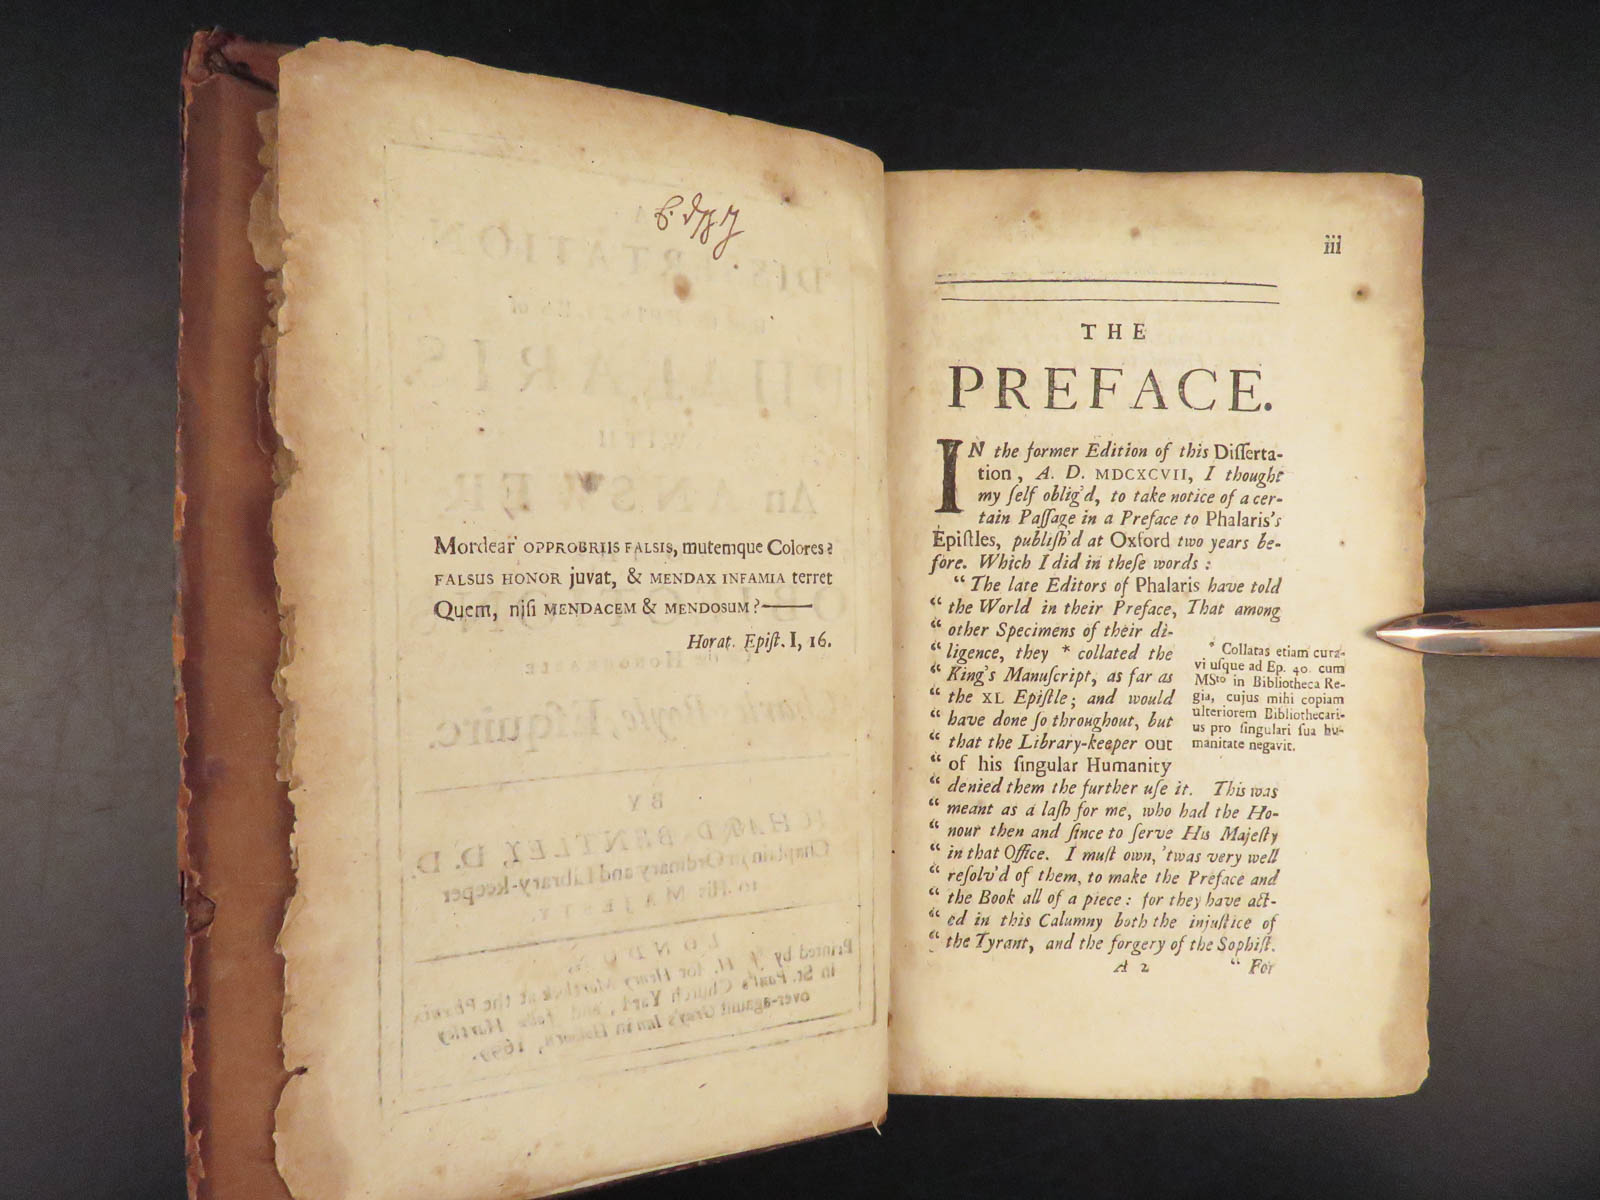 Mordear' OPPROBRIIS FALSIS, mutemque Colores?
FALSUS HONOR juvat, & MENDAX INFAMIA terret
Quem, niſi MENDACEM & MENDOSUM?
Horat. Epiſt. I, 16.
iii
THE
PREFACE.
IN the former Edition of this Diſſerta-
tion, A. D. MDCXCVII, I thought
my ſelf oblig'd, to take notice of a cer-
tain Paſſage in a Preface to Phalaris's
Epiſtles, publiſh'd at Oxford two years be-
fore. Which I did in theſe words:
“ The late Editors of Phalaris have told
“ the World in their Preface, That among
“ other Specimens of their di-
“ ligence, they * collated the
“ King's Manuſcript, as far as
“ the XL Epiſtle; and would
“ have done ſo throughout, but
“ that the Library-keeper out
“ of his ſingular Humanity
“ denied them the further uſe it. This was
“ meant as a laſh for me, who had the Ho-
“ nour then and ſince to ſerve His Majeſty
“ in that Office. I muſt own, 'twas very well
“ reſolv'd of them, to make the Preface and
“ the Book all of a piece: for they have act-
“ ed in this Calumny both the injuſtice of
“ the Tyrant, and the forgery of the Sophiſt.
* Collatas etiam cura-
vi uſque ad Ep. 40. cum
MSto in Bibliotheca Re-
gia, cujus mihi copiam
ulteriorem Bibliothecari-
us pro ſingulari ſua hu-
manitate negavit.
A 2 “ For